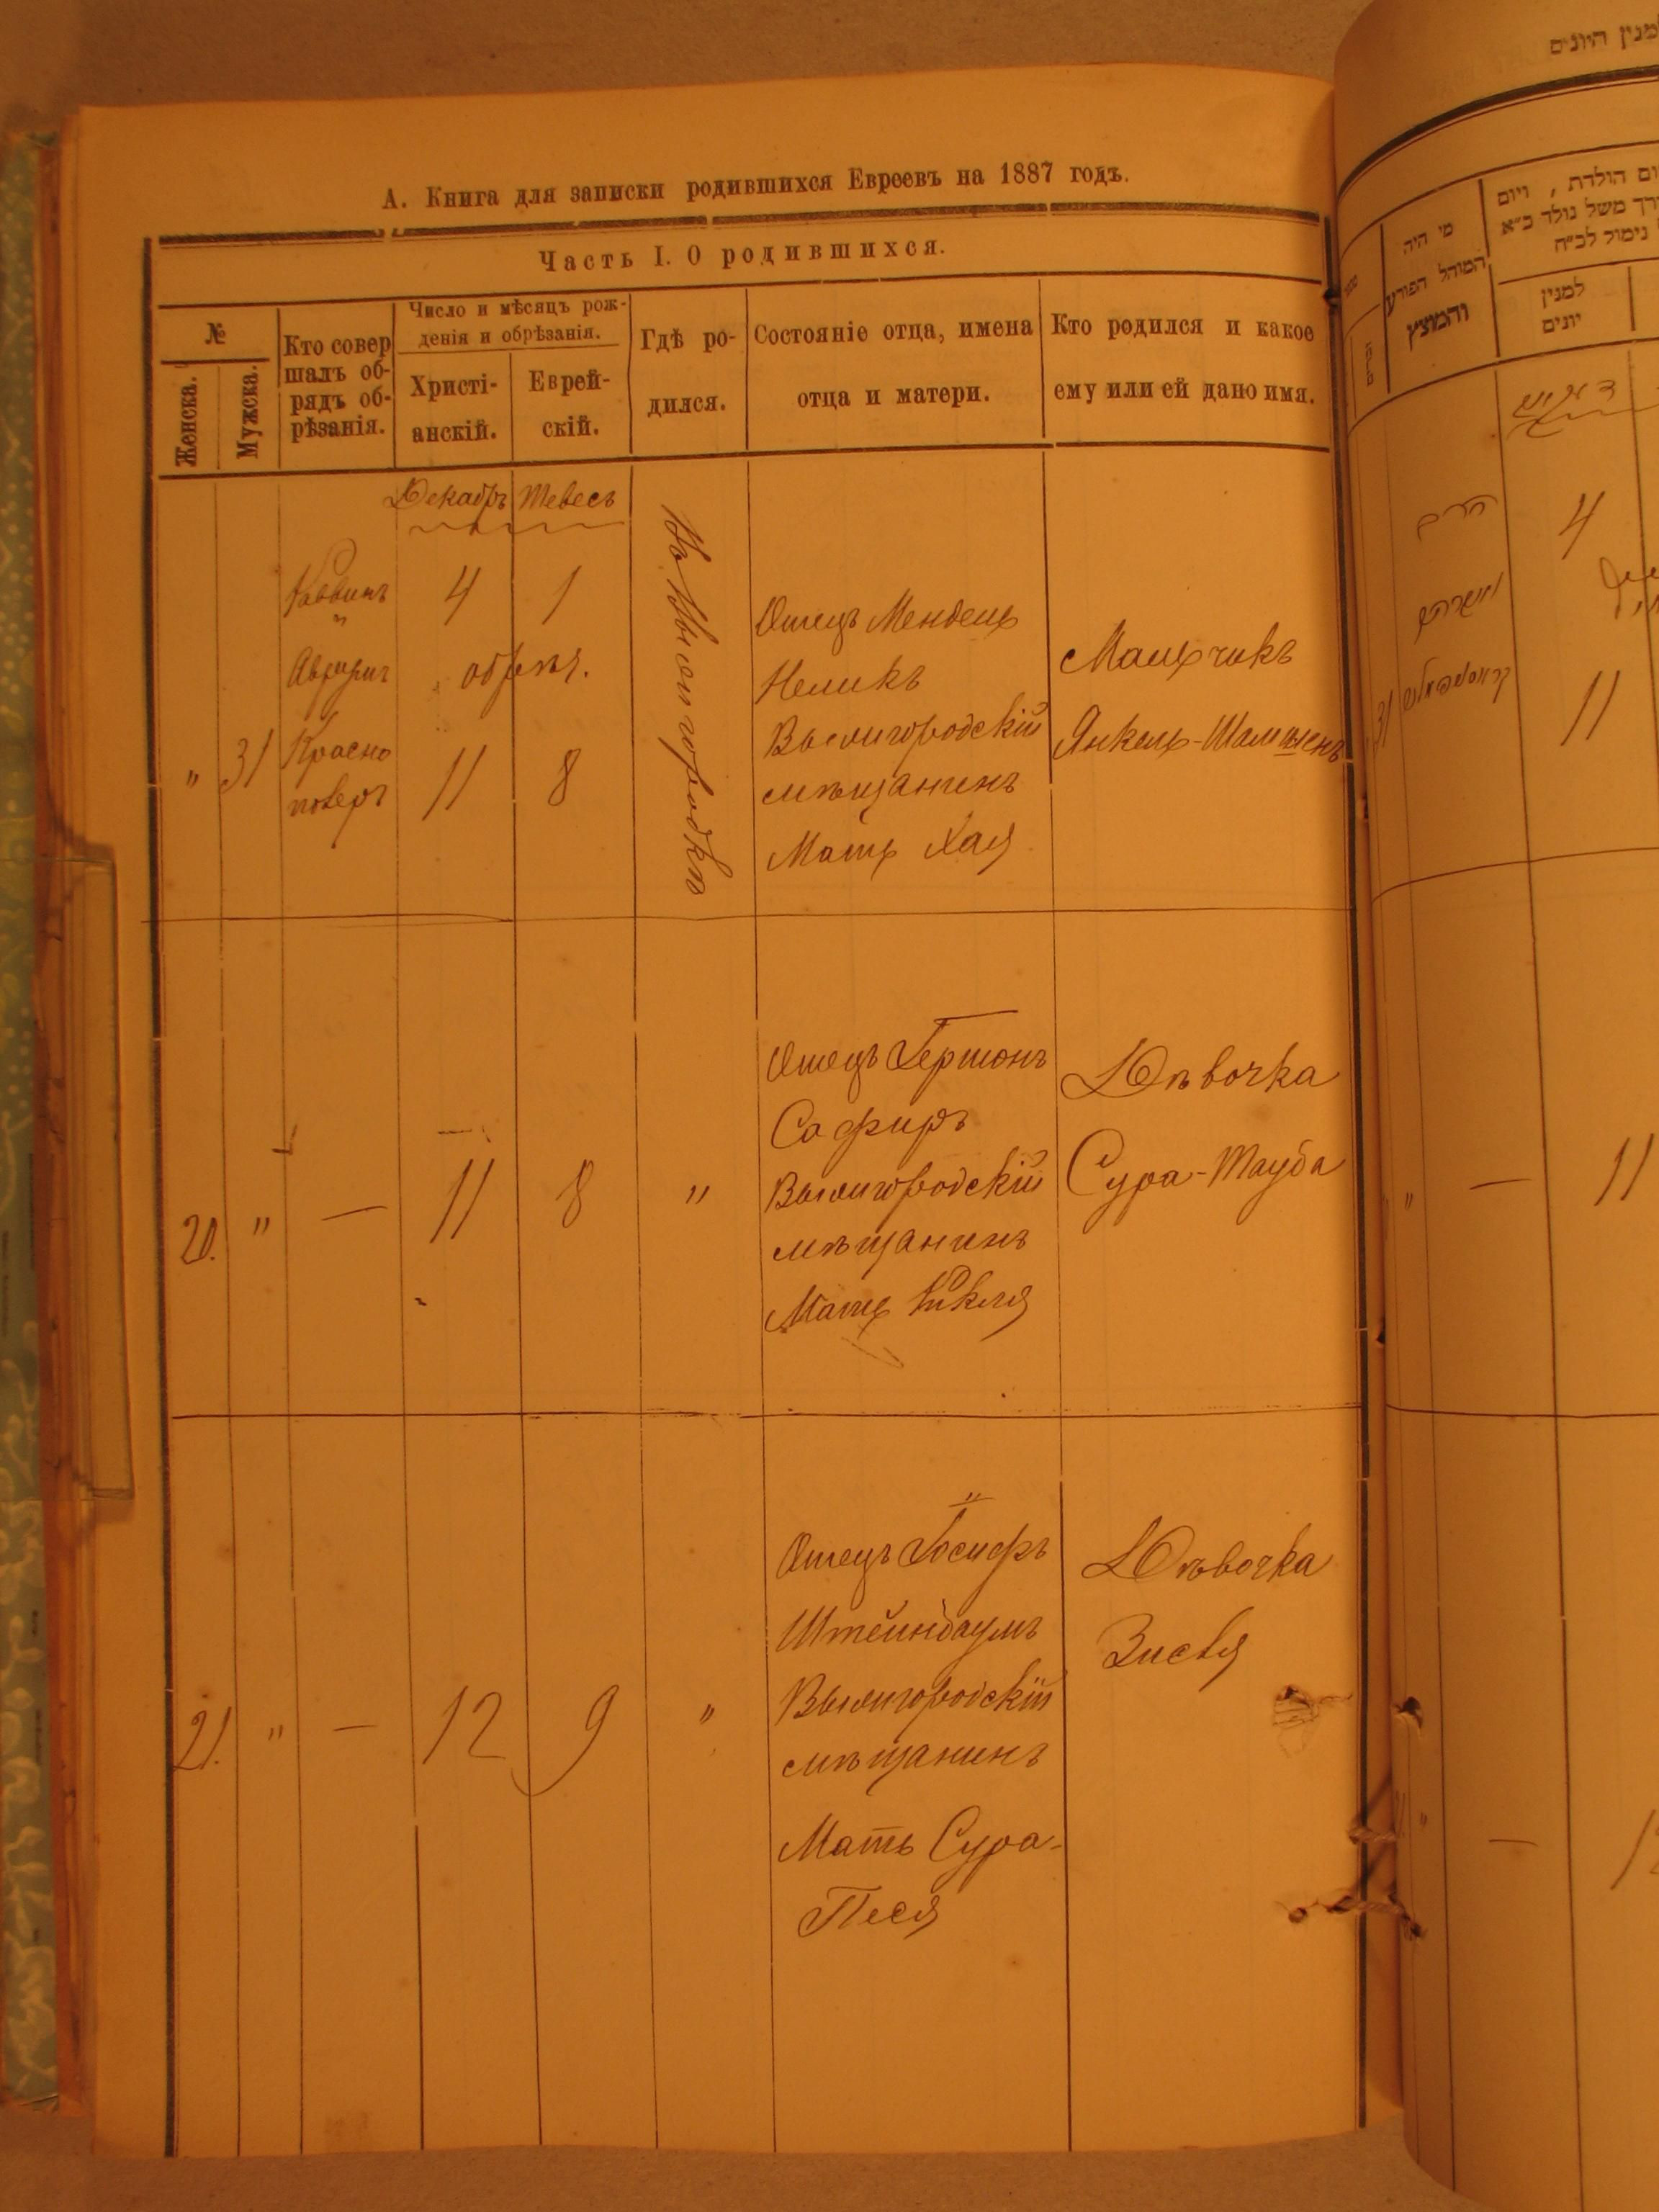 А. Книга для записки родившихся Евреевъ на 1887 годъ.
Часть I. О родившихся.
№
Женска.
Мужска.
Кто совер
шалъ об-
рядъ об-
рѣзанія.
Число и мѣсяцъ рож-
денія и обрѣзанія.
Христі-
анскій.
Еврей-
скій.
Гдѣ ро-
дился.
Состояніе отца, имена
отца и матери.
Кто родился и какое
ему или ей дано имя.
Декабрь Тевесъ
"
31
Раввинъ
"
Красно
поверъ
4 1
обрѣз.
11 8
Отецъ Мендель
Вышгородскій
мѣщанинъ
Мать Хая
Мальчикъ
Янкель-
20. " — 11 8 "
Отецъ Гершонъ
Сафиръ
Вышгородскій
мѣщанинъ
Мать
Дѣвочка
Сура-Тауба
21. " — 12 9 "
Отецъ Іосифъ
Штейнбаумъ
Вышгородскій
мѣщанинъ
Мать Сура-
Песя
Дѣвочка
למנין היונים
מי היה
המוהל הפורע
והמוצץ
למנין
יונים
4
31
11
" — 11
" —